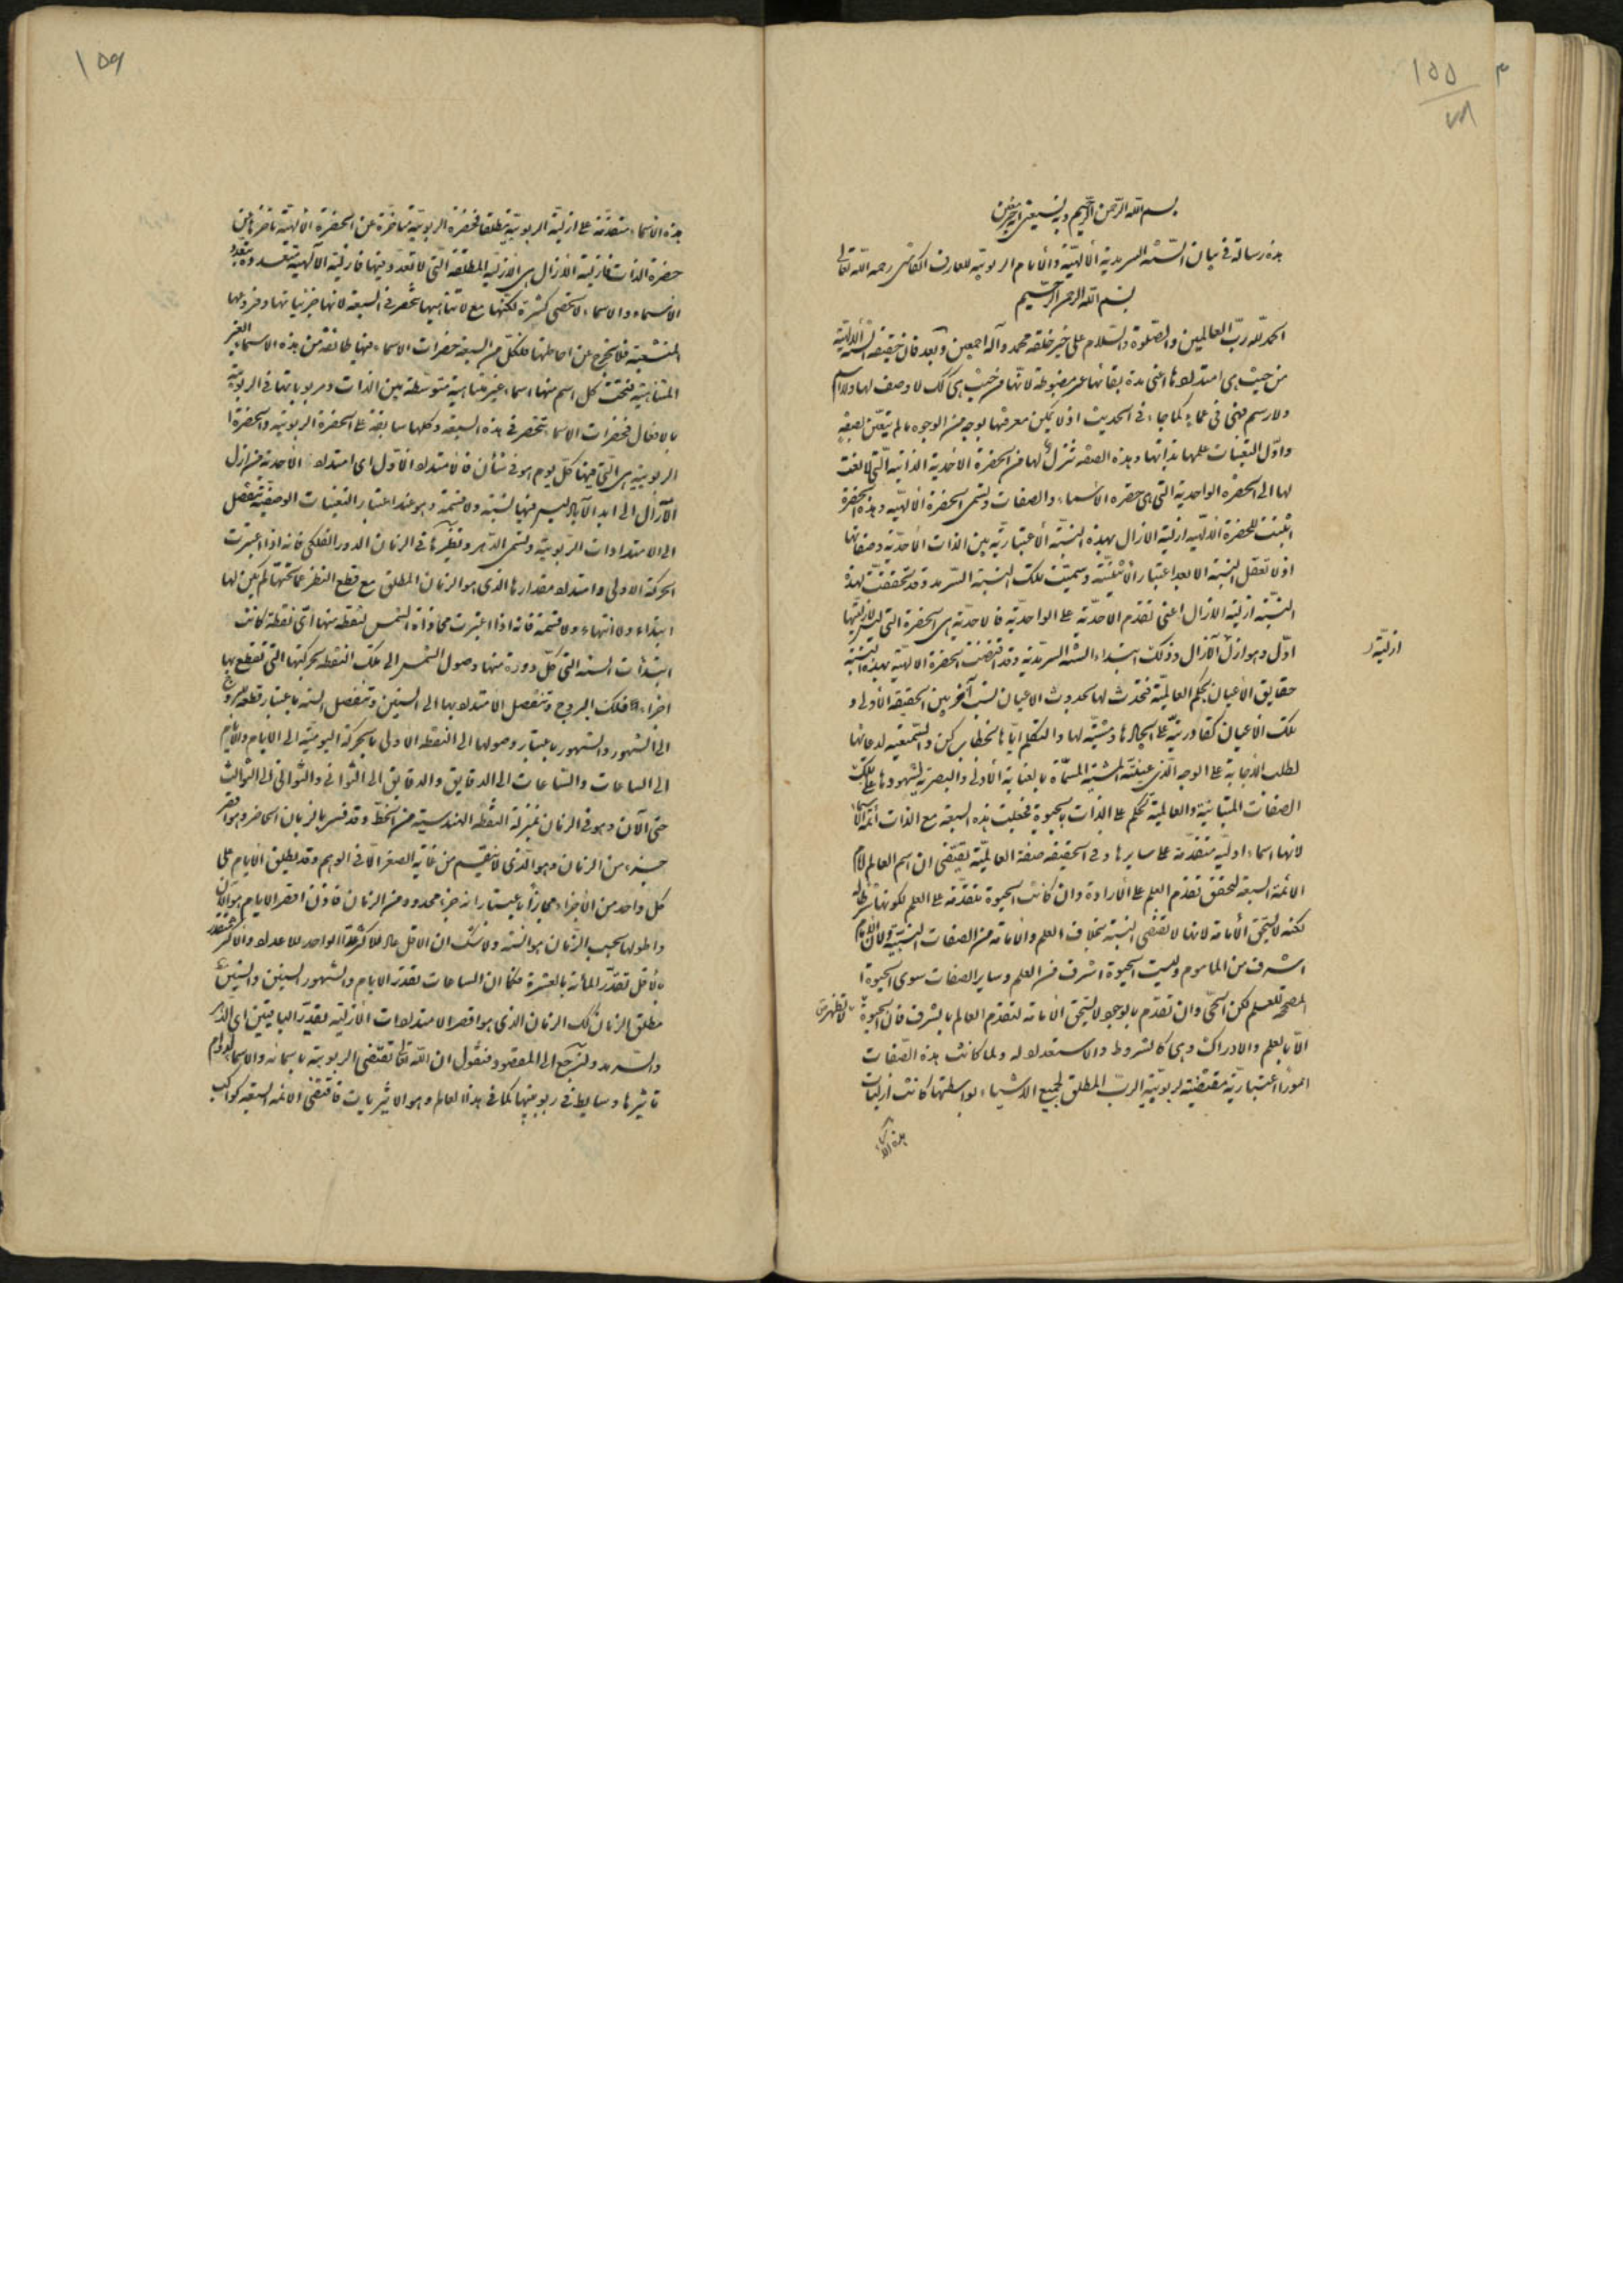 ١٥٥
٧٨
بسم الله الرحمن الرحيم وبه نستعين
هذه رسالة في بيان السنة السرمدية الالهية والأيام الربوبية للعارف الكاشى رحمه الله تعالى
بسم الله الرحمن الرحيم
الحمد لله رب العالمين والصلوة والسلام على خير خلقه محمد وآله اجمعين وبعد فان حقيقة الله
من حيث هي امتدادها اعنى مدة بقائها غير مضبوطة لانها من حيث هي كك لا وصف لها ولا اسم
ولا رسم فهي في عماء كما جاء في الحديث اذ لا يمكن معرفتها بوجه من الوجوه ما لم يتعين بصفة
واول التعينات علمها بذاتها وبهذه الصفة تنزل لها من الحضرة الاحدية الذاتية التي لا نعت
لها الى الحضرة الواحدية التي هي حضرة الاسماء والصفات وتسمى الحضرة الالهية وبهذه الحضرة
اثبتت للحضرة الالهية ازلية الازال بهذه النسبة الاعتبارية بين الذات الاحدية وصفاتها
اذ لا تعقل النسبة الا بعد اعتبار الاثنينية وسميت تلك النسبة السرمد وقد تحققت بهذه
النسبة ازلية الازال اعنى تقدم الاحدية على الواحدية فالاحدية هي الحضرة التي ليس لازليتها
اول وهو ازل الآزال وذلك ابتداء السنة السرمدية وقد اقتضت الحضرة الالهية بهذه النسبة
ازلية
حقايق الاعيان بحكم العالمية فحدث لها بحدوث الاعيان نسب آخر بين الحقيقة الاولى و
تلك الاعيان كقادرية على ايجادها ومشية لها والتكلم اياها بخطاب كن والسميعية لدعائها
لطلب الاجابة على الوجه الذي عينته المشية المسماة بالعناية الاولى والبصرية لشهودها على تلك
الصفات المتباينة والعالمية تحكم على الذات بالحيوة فجعلت هذه السبعة مع الذات ائمة الاسماء
لانها اسماء اولية متقدمة على سايرها وفي الحقيقة صفة العالمية تقتضى ان اسم العالم امام
الائمة السبعة لتحقق تقدم العلم على الارادة وان كانت الحيوة متقدمة على العلم لكونها شرطا له
لكنه لا يستحق الأمامة لانها لا تقتضى النسبة بخلاف العلم والامامة من الصفات النسبية ولان الامام
اشرف من الماموم وليست الحيوة اشرف من العلم وساير الصفات سوى الحيوة
المصححة للعلم لكن الحي وان تقدم بالوجود لا يستحق الامامة لتقدم العالم بالشرف فان الحيوة لا تظهر
الا بالعلم والادراك وهي كالشروط والاستعداد له ولما كانت هذه الصفات
امورا اعتبارية مقتضية لربوبية الرب المطلق لجميع الاشياء بواسطتها كانت ازليات
هذه الاسماء
١٥٦
هذه الاسماء متقدمة على ازلية الربوبية مطلقا فحضرة الربوبية متأخرة عن الحضرة الالهية تأخرها عن
حضرة الذات فازلية الازال هي الازلية المطلقة التي لا تعدد فيها فازلية الآلهية متعددة بتعدد
الاسماء والاسماء لا تحصى كثرة لكنها مع لا تناهيها تنحصر في السبعة لانها جزئياتها وفروعها
المنشعبة فلا يخرج عن احاطتها فلكل من السبعة حضرات الاسماء فيها طائفة من هذه الاسماء الغير
المتناهية فتحت كل اسم منها اسماء غير متناهية متوسطة بين الذات ومربوباتها في الربوبية
بالافعال فحضرات الاسماء تنحصر في هذه السبعة وكلها سابقة على الحضرة الربوبية والحضرة
الربوبية هي التي فيها كل يوم هو في شأن فالامتداد الاول اى امتداد الاحدية من ازل
الآزال الى ابد الآباد ليس فيها نسبة ولا قسمة وهو عند اعتبار التعينات الوصفية تنفصل
الى الامتدادات الربوبية وتسمى الدهر ونظيرها في الزمان الدور الفلكى فانه اذا اعتبرت
الحركة الاولى وامتداد مقدارها الذى هو الزمان المطلق مع قطع النظر عما تحتها لم يكن لها
ابتداء ولا انتهاء ولا قسمة فانه اذا اعتبرت محاذاة الشمس لنقطة منها اى نقطة كانت
ابتدأت السنة التي كل دورة منها وصول الشمس الى تلك النقطة بحركتها التي تقطع بها
اجزاء فلك البروج وتنفصل الامتداد بها الى السنين وتنفصل السنة باعتبار قطع البروج
الى الشهور والشهور باعتبار وصولها الى النقطة الاولى بالحركة اليومية الى الايام والايام
الى الساعات والساعات الى الدقايق والدقايق الى الثواني والثواني الى الثوالث
حتى الآن وهو في الزمان بمنزلة النقطة الهندسية من الخط وقد فسر بالزمان الحاضر وهو اقصر
جزء من الزمان وهو الذى لا ينقسم من غاية الصغر الا في الوهم وقد يطلق الايام على
كل واحد من الأجزاء مجازا باعتبار انه جزء محدود من الزمان فاذن اقصر الايام هو الآن
واطولها بحسب الزمان هو السنة ولا شك ان الاقل عاد للاكثر عد الواحد للاعداد والاكثر يتقدر
بالاقل تقدر المائة بالعشرة فكما ان الساعات تقدر الايام والشهور السنين والسنين
مطلق الزمان كك الزمان الذى هو اقصر الامتدادات الأزلية يقدر الباقيين اى الدهر
والسرمد ولنرجع الى المقصود فنقول ان الله تعالى تقتضى الربوبية باسمائه والاسماء لدوام
تاثيرها وسايط في ربوبيتها كما في هذا العالم وهو الاثيريات فاقتضى الائمة السبعة كواكب